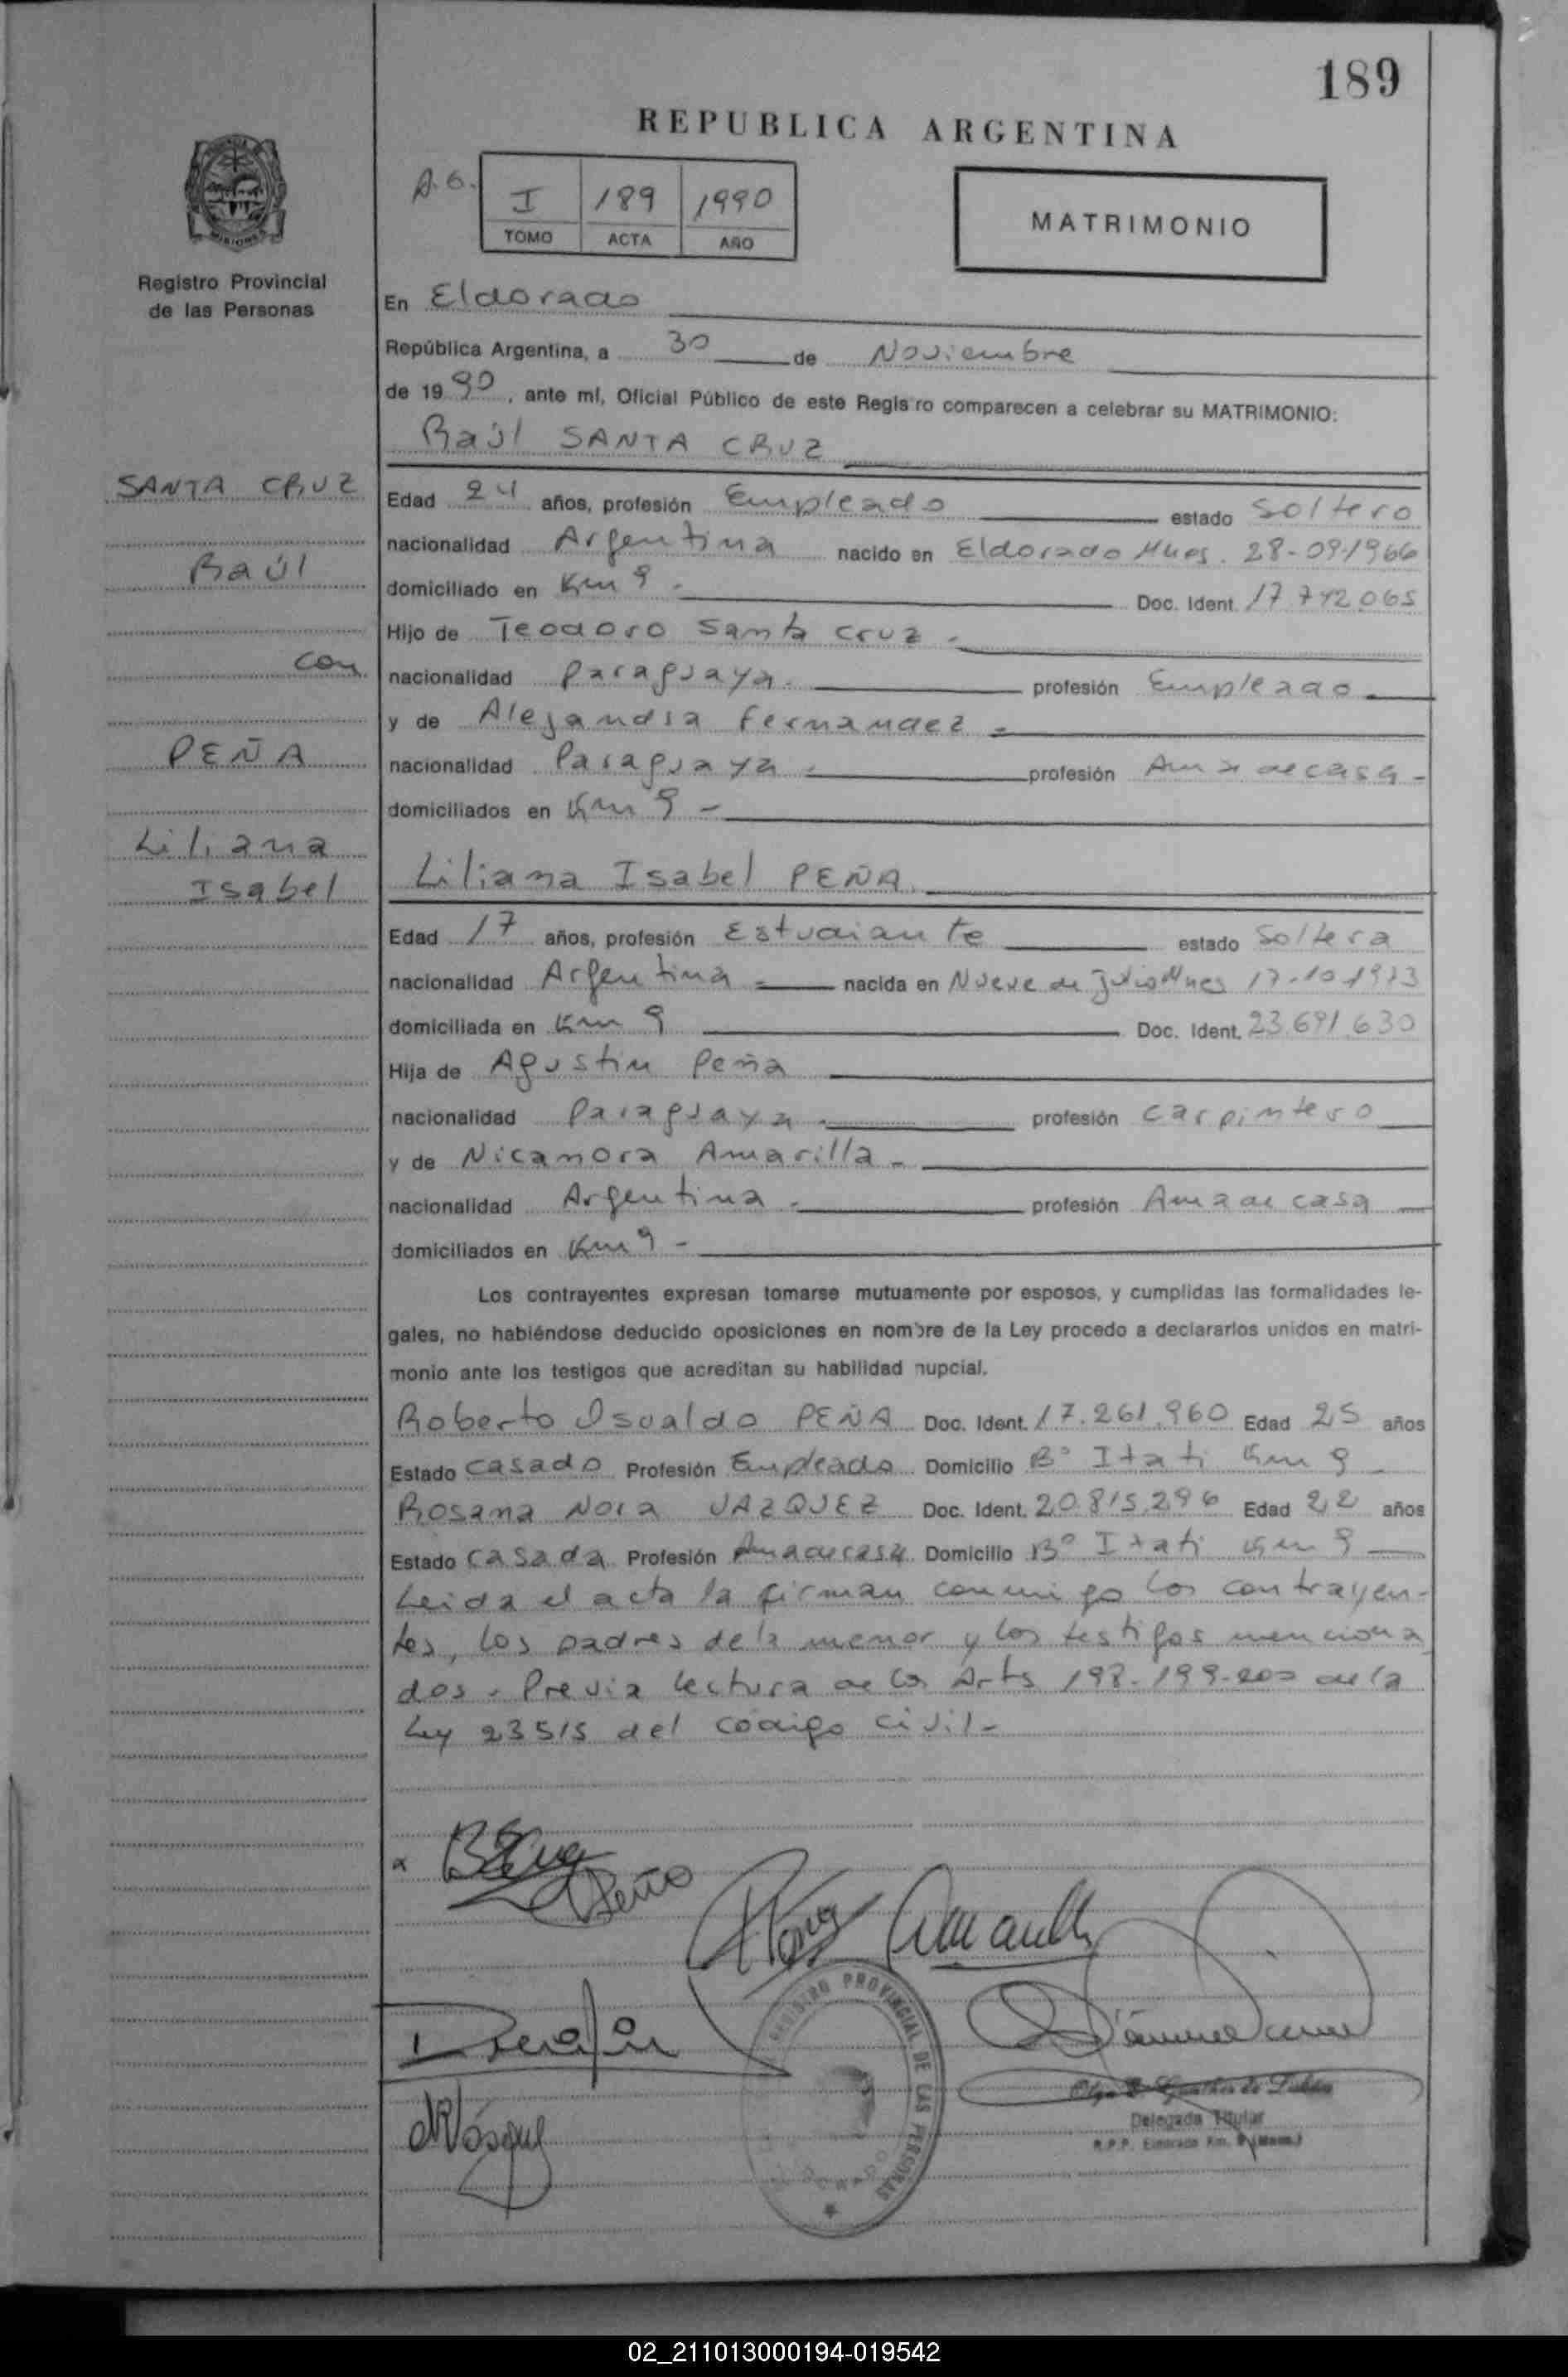 189
REPUBLICA ARGENTINA
A.G.
I 189 1990
TOMO ACTA AÑO
MATRIMONIO
MISIONES
Registro Provincial
de las Personas
En Eldorado
República Argentina, a 30 de Noviembre
de 1990, ante mí, Oficial Público de este Registro comparecen a celebrar su MATRIMONIO:
Raúl SANTA CRUZ
SANTA CRUZ
Raúl
con
PEÑA
Liliana
Isabel
Edad 24 años, profesión Empleado estado Soltero
nacionalidad Argentina nacido en Eldorado Mnes. 28-09-1966
domiciliado en Km 9 - Doc. Ident. 17 742.065
Hijo de Teodoro Santa Cruz -
nacionalidad Paraguaya - profesión Empleado
y de Alejandra Fernandez -
nacionalidad Paraguaya - profesión Ama de casa -
domiciliados en Km 9 -
Liliana Isabel PEÑA
Edad 17 años, profesión Estudiante estado Soltera
nacionalidad Argentina - nacida en Nueve de Julio Mnes 17-10-1973
domiciliada en Km 9 Doc. Ident. 23.691.630
Hija de Agustin Peña
nacionalidad Paraguaya - profesión Carpintero
y de Nicanora Amarilla -
nacionalidad Argentina - profesión Ama de casa
domiciliados en Km 9 -
Los contrayentes expresan tomarse mutuamente por esposos, y cumplidas las formalidades le-
gales, no habiéndose deducido oposiciones en nombre de la Ley procedo a declararlos unidos en matri-
monio ante los testigos que acreditan su habilidad nupcial.
Roberto Osvaldo PEÑA Doc. Ident. 17.261.960 Edad 25 años
Estado Casado Profesión Empleado Domicilio B° Itati Km 9
Rosana Nora VAZQUEZ Doc. Ident. 20.815.296 Edad 22 años
Estado Casada Profesión Ama de casa Domicilio B° Itati Km 9
Leida el acta la firman conmigo los contrayen-
tes, los padres de la menor y los testigos menciona
dos - Previa lectura de los Arts 198-199-200 de la
Ley 23515 del codigo civil -
Peña
REGISTRO PROVINCIAL DE LAS PERSONAS
ELDORADO
Delegada Titular
R.P.P. Eldorado Km. 9 (Mnes.)
02_211013000194-019542